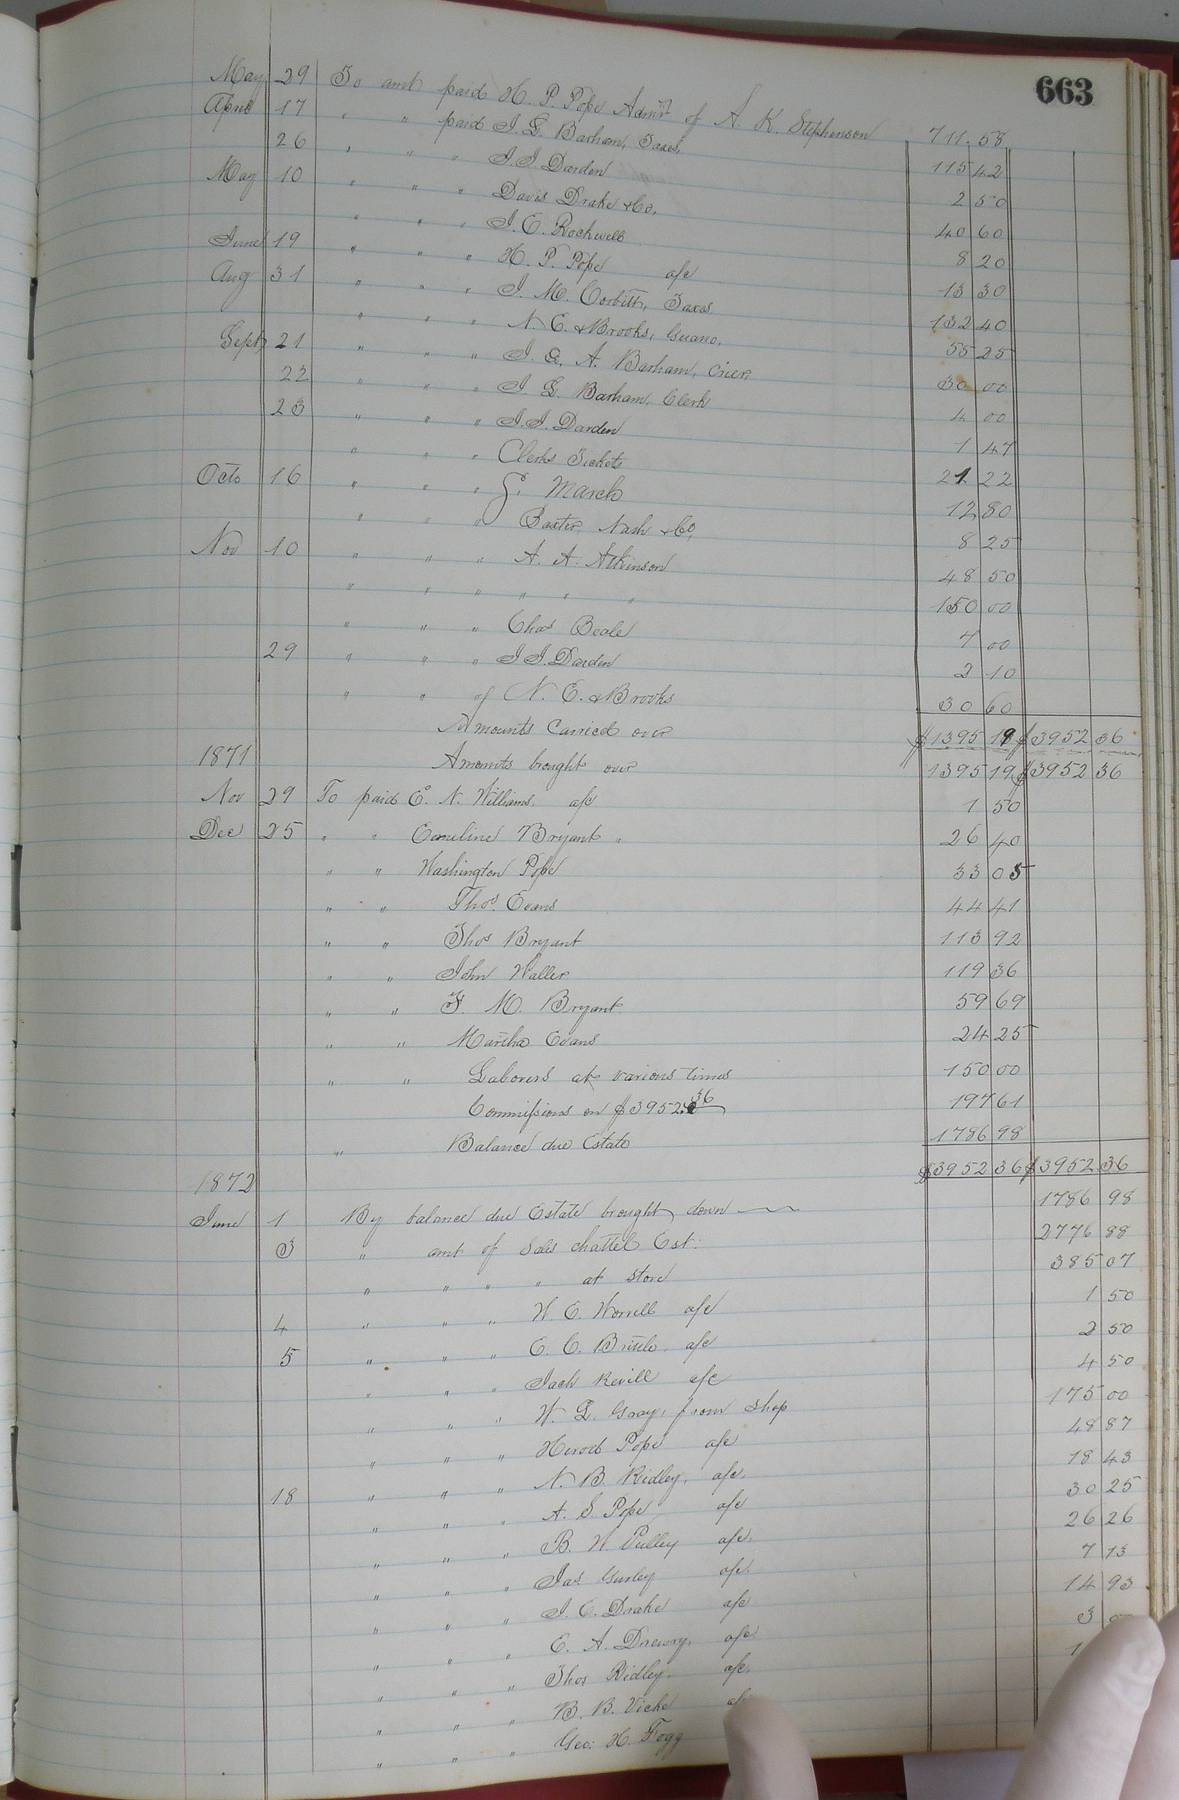 663
May 29 To amt paid H. P. Pope Admr of A. K. Stephenson 711.58
April 17 " " paid J. G. Barham, Taxes, 115 42
26 " " " J. J. Darden 2 50
May 10 " " " Davis Drake & Co, 40 60
" " " J. E. Rockwell 8 20
June 19 " " " H. P. Pope a/c 13 30
Aug 31 " " " J. M. Corbitt, Taxes 132 40
" " " N. E. & Brooks, Guano, 55 25
Sept 21 " " " J. Q. A. Barham, Crier, 30 00
22 " " " J. G. Barham, Clerk 4 00
23 " " " J. J. Darden 1 47
" " " Clerks Tickets 21 22
Octo 16 " " " J. March 12 80
" " " Baxter, Nash & Co, 8 25
Nov 10 " " " A. A. Atkinson 48 50
" " " " " " 150 00
" " " Chas Beale 7 00
29 " " " J. J. Darden 2 10
" " of N. E. & Brooks 30 60
Amounts Carried over $1395 19 $3952 36
1871 Amounts brought over 1395 19 $3952 36
Nov 29 To paid E. N. Williams, a/c 1 50
Dec 25 " " Emeline Bryant " 26 40
" " Washington Pope 33 05
" " Thos. Evans 44 41
" " Thos Bryant 113 92
" " John Waller 119 36
" " F. M. Bryant 59 69
" " Martha Evans 24 25
" " Laborers at various times 150 00
Commissions on $3952.36 197 61
" Balance due Estate 1786 98
$3952 36 $3952 36
1872
June 1 By balance due Estate brought down 1786 98
3 " amt of Sales chattel Est: 2776 88
" " " " at store 385 07
4 " " " W. E. Worrell a/c 1 50
5 " " " E. C. Britelo a/c 2 50
" " " Jack Revill a/c 4 50
" " " W. L. Gray, from Shop 175 00
" " " Herod Pope a/c 48 87
18 " " " N. B. Ridley, a/c. 18 43
" " " A. S. Pope a/c 30 25
" " " B. W. Pulley a/c. 26 26
" " " Jas Gurley a/c. 7 13
" " " J. C. Drake a/c 14 93
" " " E. A. Drewry, a/c 3 00
" " " Thos Ridley, a/c. 1
" " " B. B. Vick
" " " Geo: H. Fogg